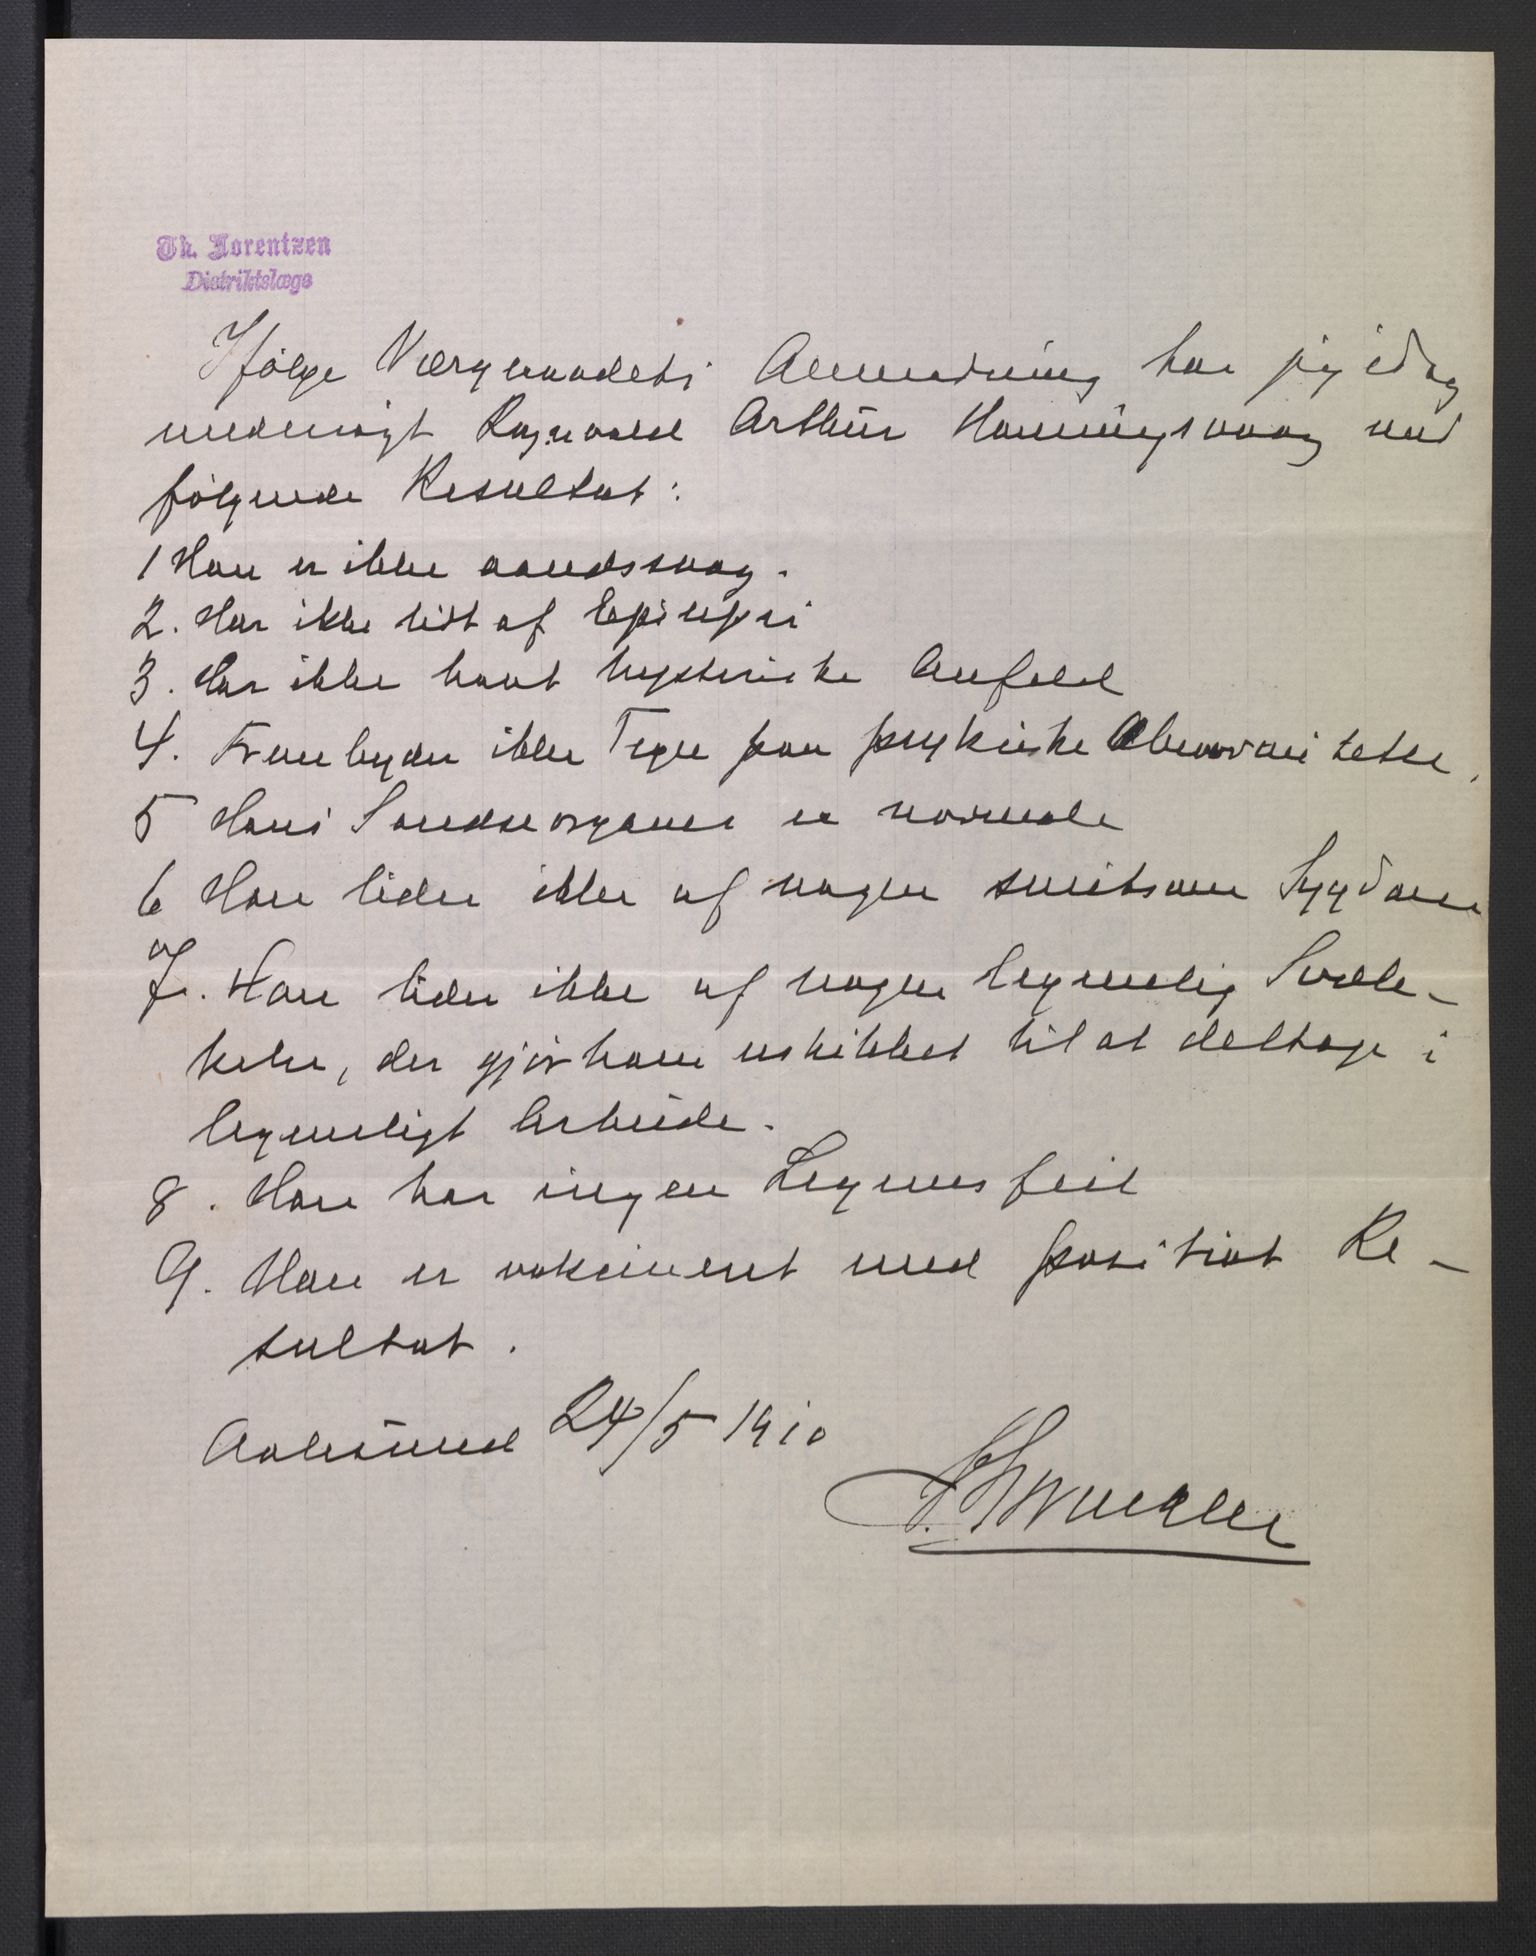 Th. Lorentzen
Distriktslæge
Ifølge Værgeraadets Anmodning har jeg idag
undersøgt Ragnvald Arthur Honningsvaag med
følgende Resultat:
1 Han er ikke aandssvag.
2. Har ikke lidt af Epilepsi
3. Har ikke havt hysteriske Anfald
4. Frembyder ikke Tegn paa psykiske Abnormiteter.
5 Hans Sandseorganer er normale
6 Han lider ikke af nogen smitsom Sygdom
7. Han lider ikke af nogen legemelig Svæk-
kelse, der gjør ham uskikket til at deltage i
legemeligt Arbeide.
8. Han har ingen Legemsfeil
9. Han er vakcineret med positivt Re-
sultat.
Aalesund 24/5 1910